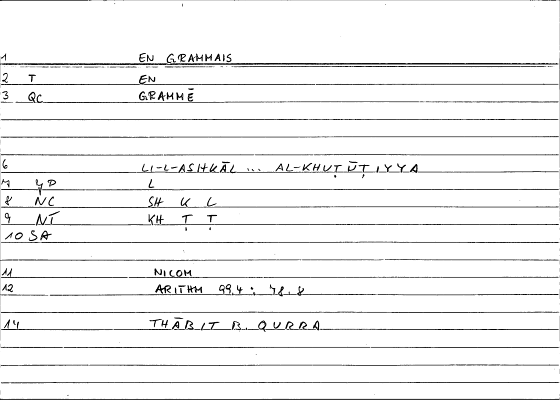 1 EN GRAMMAIS
2 T EN
3 QC GRAMMĒ
6 LI-L-ASHKĀL ... AL-KHUṬŪṬIYYA
7 YP L
8 NC SH K L
9 NI KH Ṭ Ṭ
10 SA
11 NICOM
12 ARITHM 99.4 : 48.8
14 THĀBIT B. QURRA